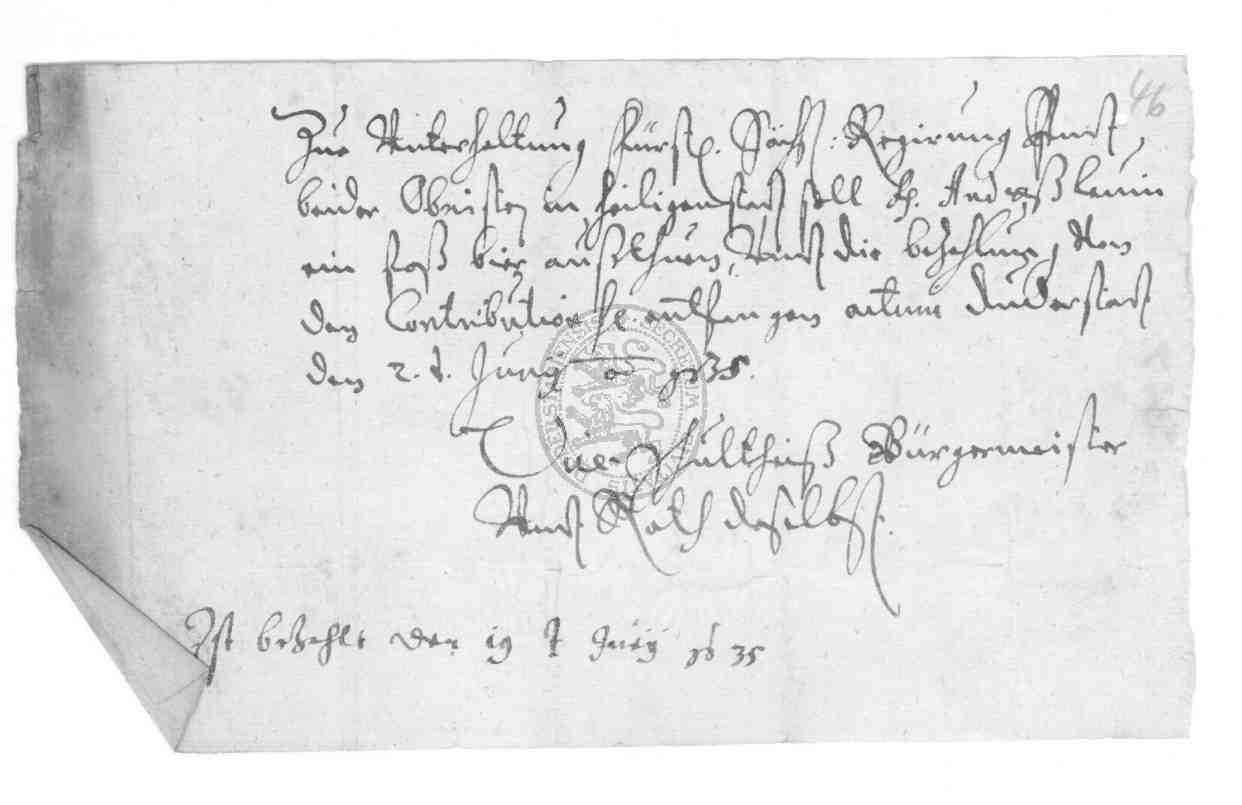 46
Zue Unterhaltung Fürstl. Sächß: Regirung
beider Obristen in Heiligenstadt soll H. Andreß
ein faß bier außthuen, Undt die bezahlung Von
den Contribution H. entfangen actum Duderstadt
den 2. t. Juny ao 1635.
Schultheiß Bürgermeister
Undt Rath daselbst.
Ist bezahlt den 19 t Juny 1635
SECRETUM